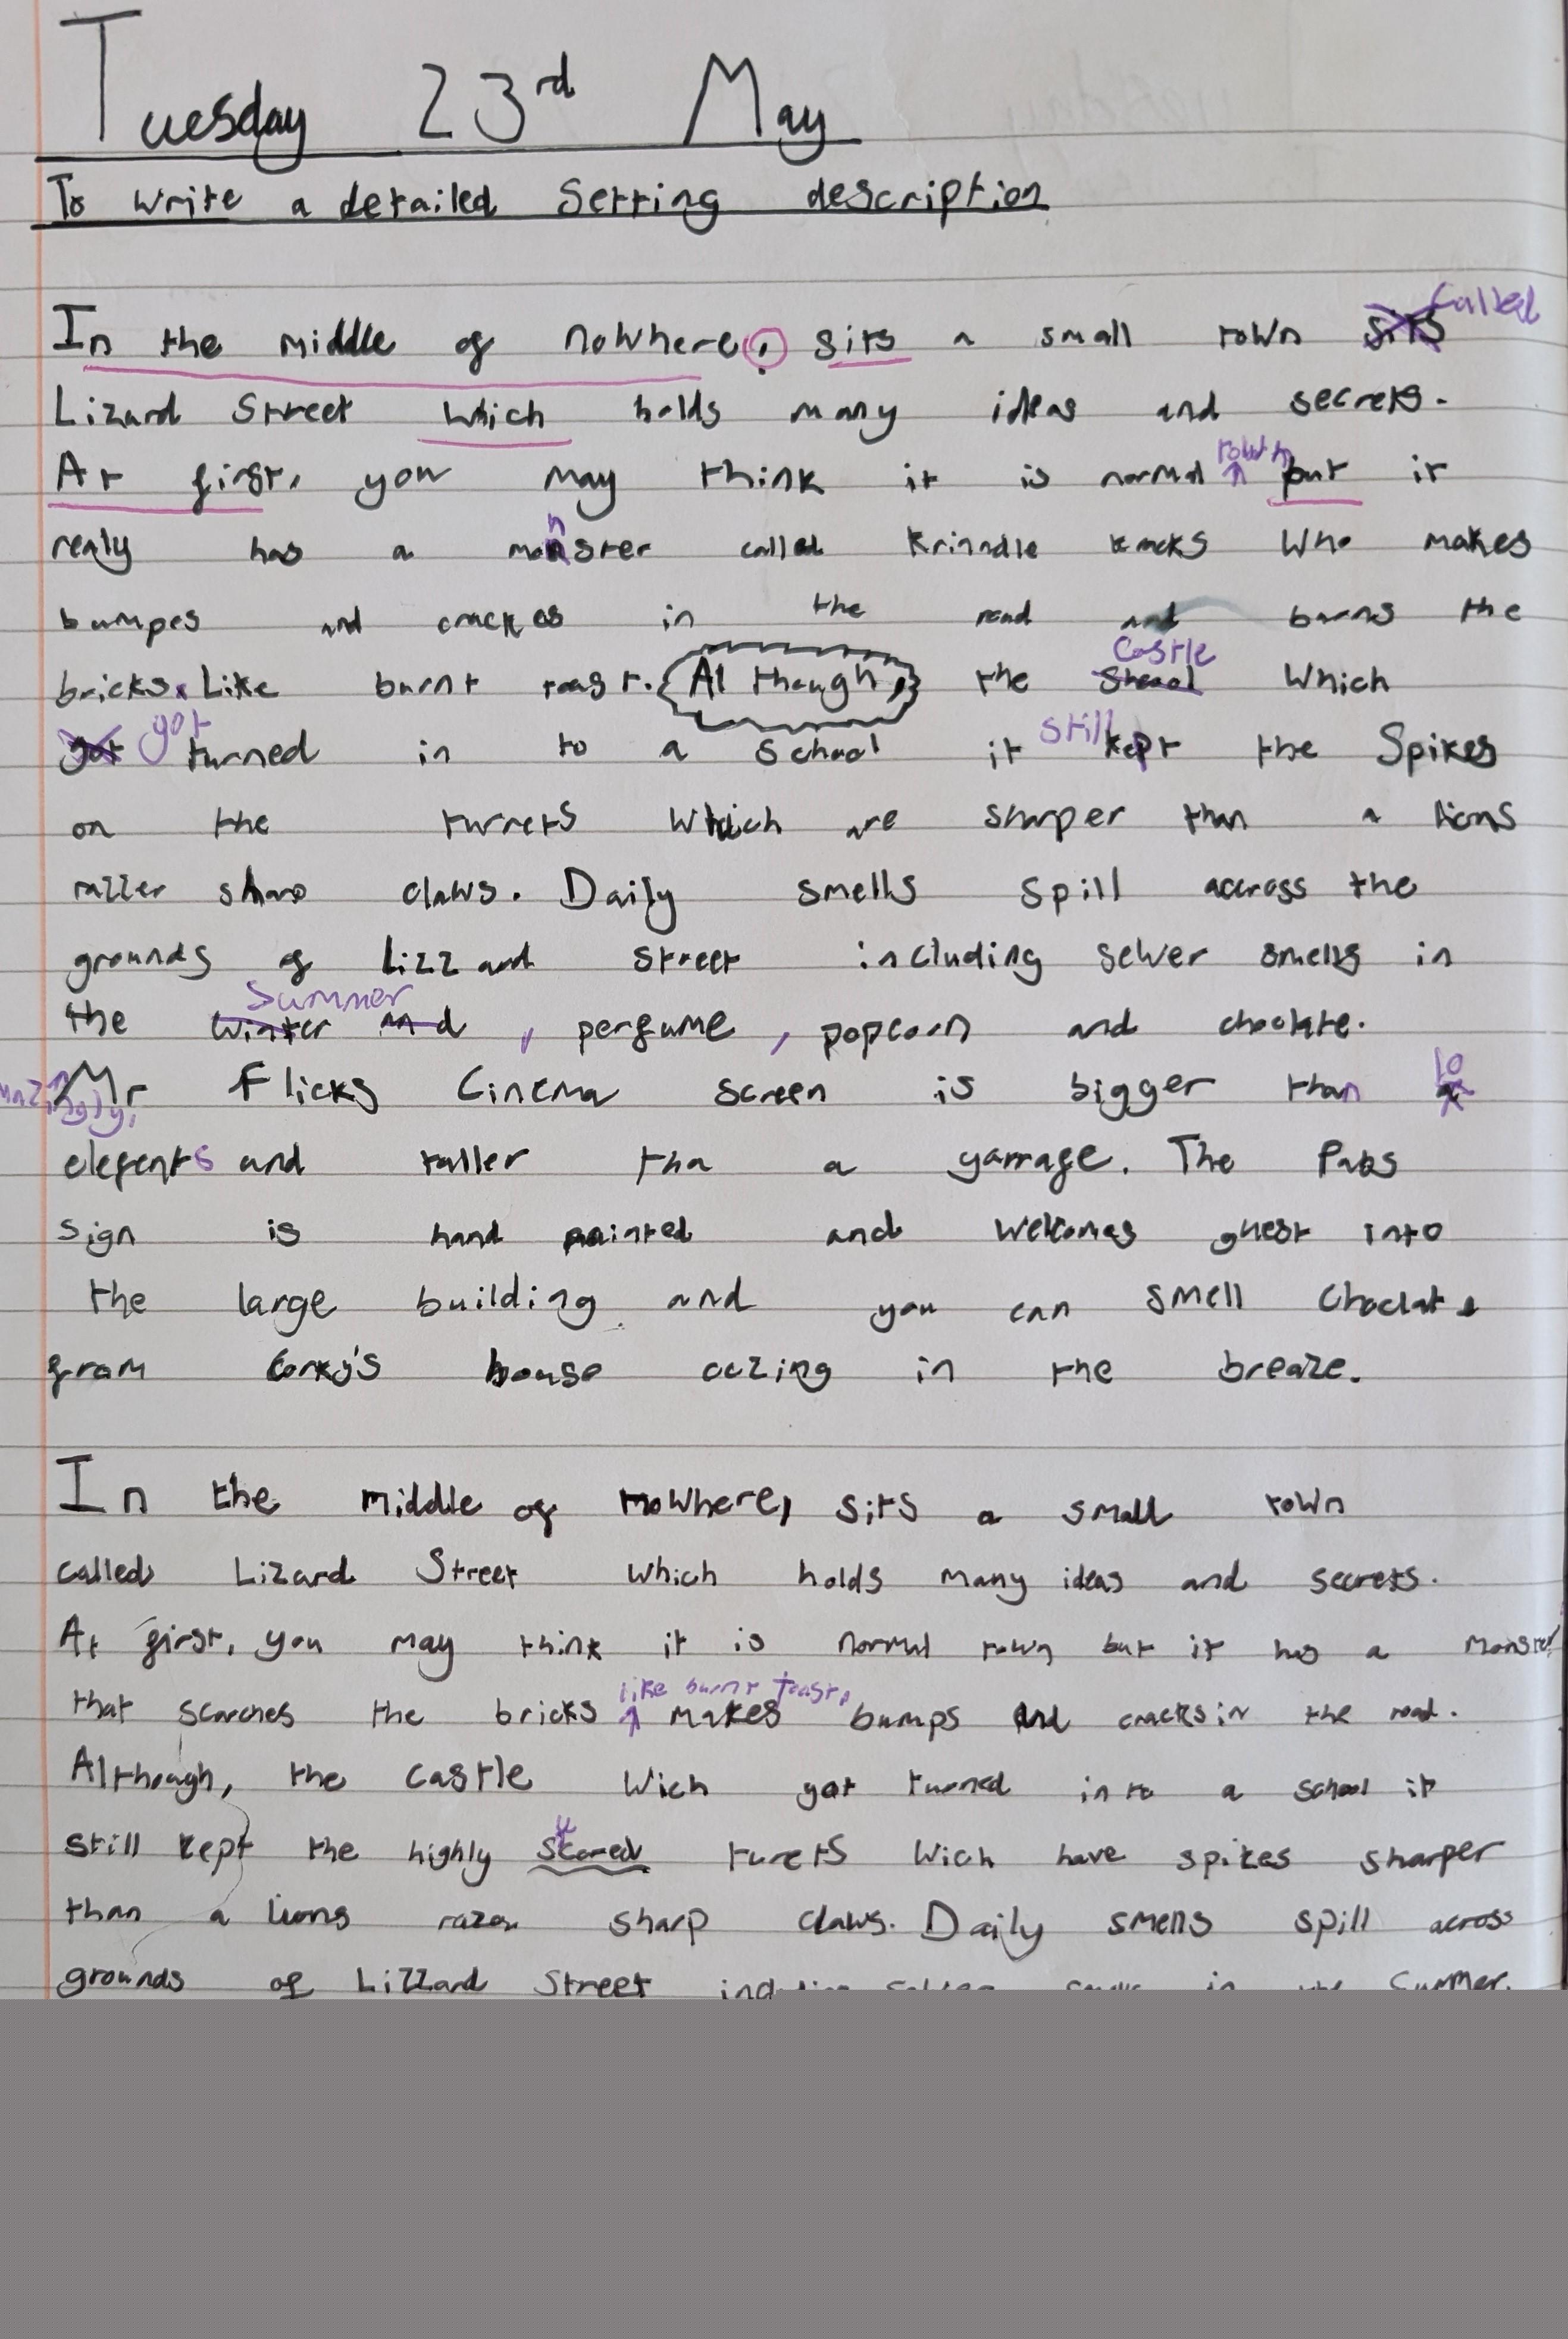 Tuesday 23rd May
To write a detailed Setting description
In the middle of nowhere, sits a small town sits called
Lizard Street which holds many ideas and secrets.
At first, you may think it is normal town but it
realy has a monster called Krinndle kracks who makes
bumpes and crackes in the road and burns the
bricks. Like burnt toast. Al though, the castle which
got turned in to a school it still kept the Spikes
on the turrets which are sharper than a lions
razzer sharp claws. Daily smells spill accross the
grounds of Lizzard street including sewer smells in
the winter and summer, perfume, popcorn and choclate.
Mr Flicks Cinema screen is bigger than 10
elefents and taller tha a garrage. The Pubs
sign is hand painted and welcomes ghest into
the large building and you can smell Choclate
from Corky's house oozing in the breaze.
In the middle of nowhere, sits a small town
called Lizard Street which holds many ideas and secrets.
At first, you may think it is normal town but it has a monster
that scorches the bricks like burnt toast, makes bumps and cracks in the road.
Although, the castle wich got turned into a school it
still kept the highly turets wich have spikes sharper
than a lions razor sharp claws. Daily smells spill across
grounds of Lizzard Street in the Summer,